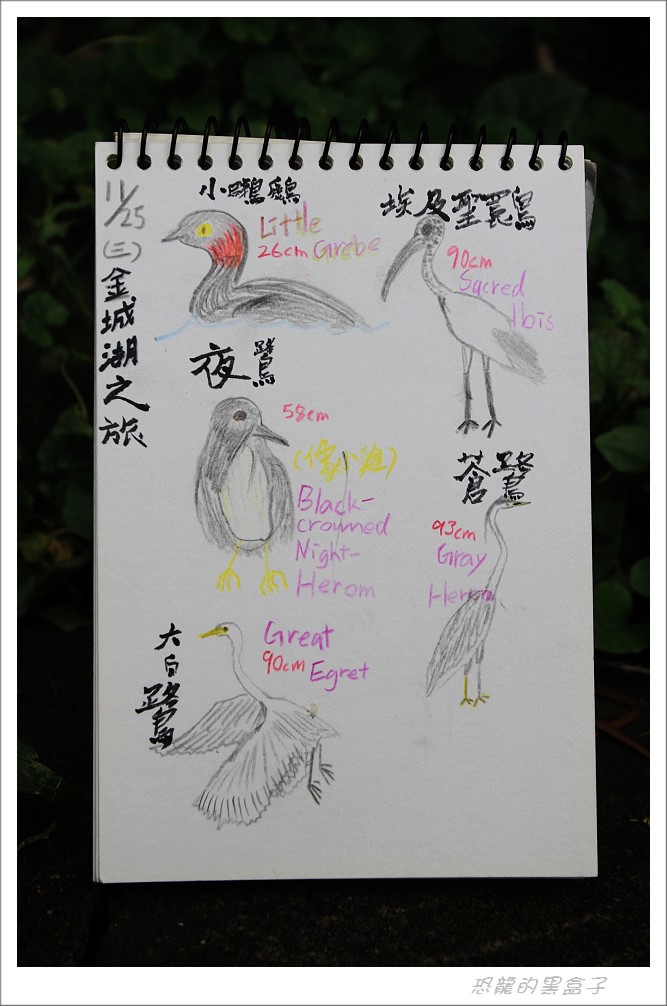 11/25
(三)
金城湖之旅
小鸊鷉
Little
26cm Grebe
埃及聖䴉
90cm
Sacred
Ibis
夜鷺
58cm
Black-
crowned
Night-
Herom
蒼鷺
93cm
Gray
Heron
大白鷺
Great
90cm Egret
恐龍的黑盒子